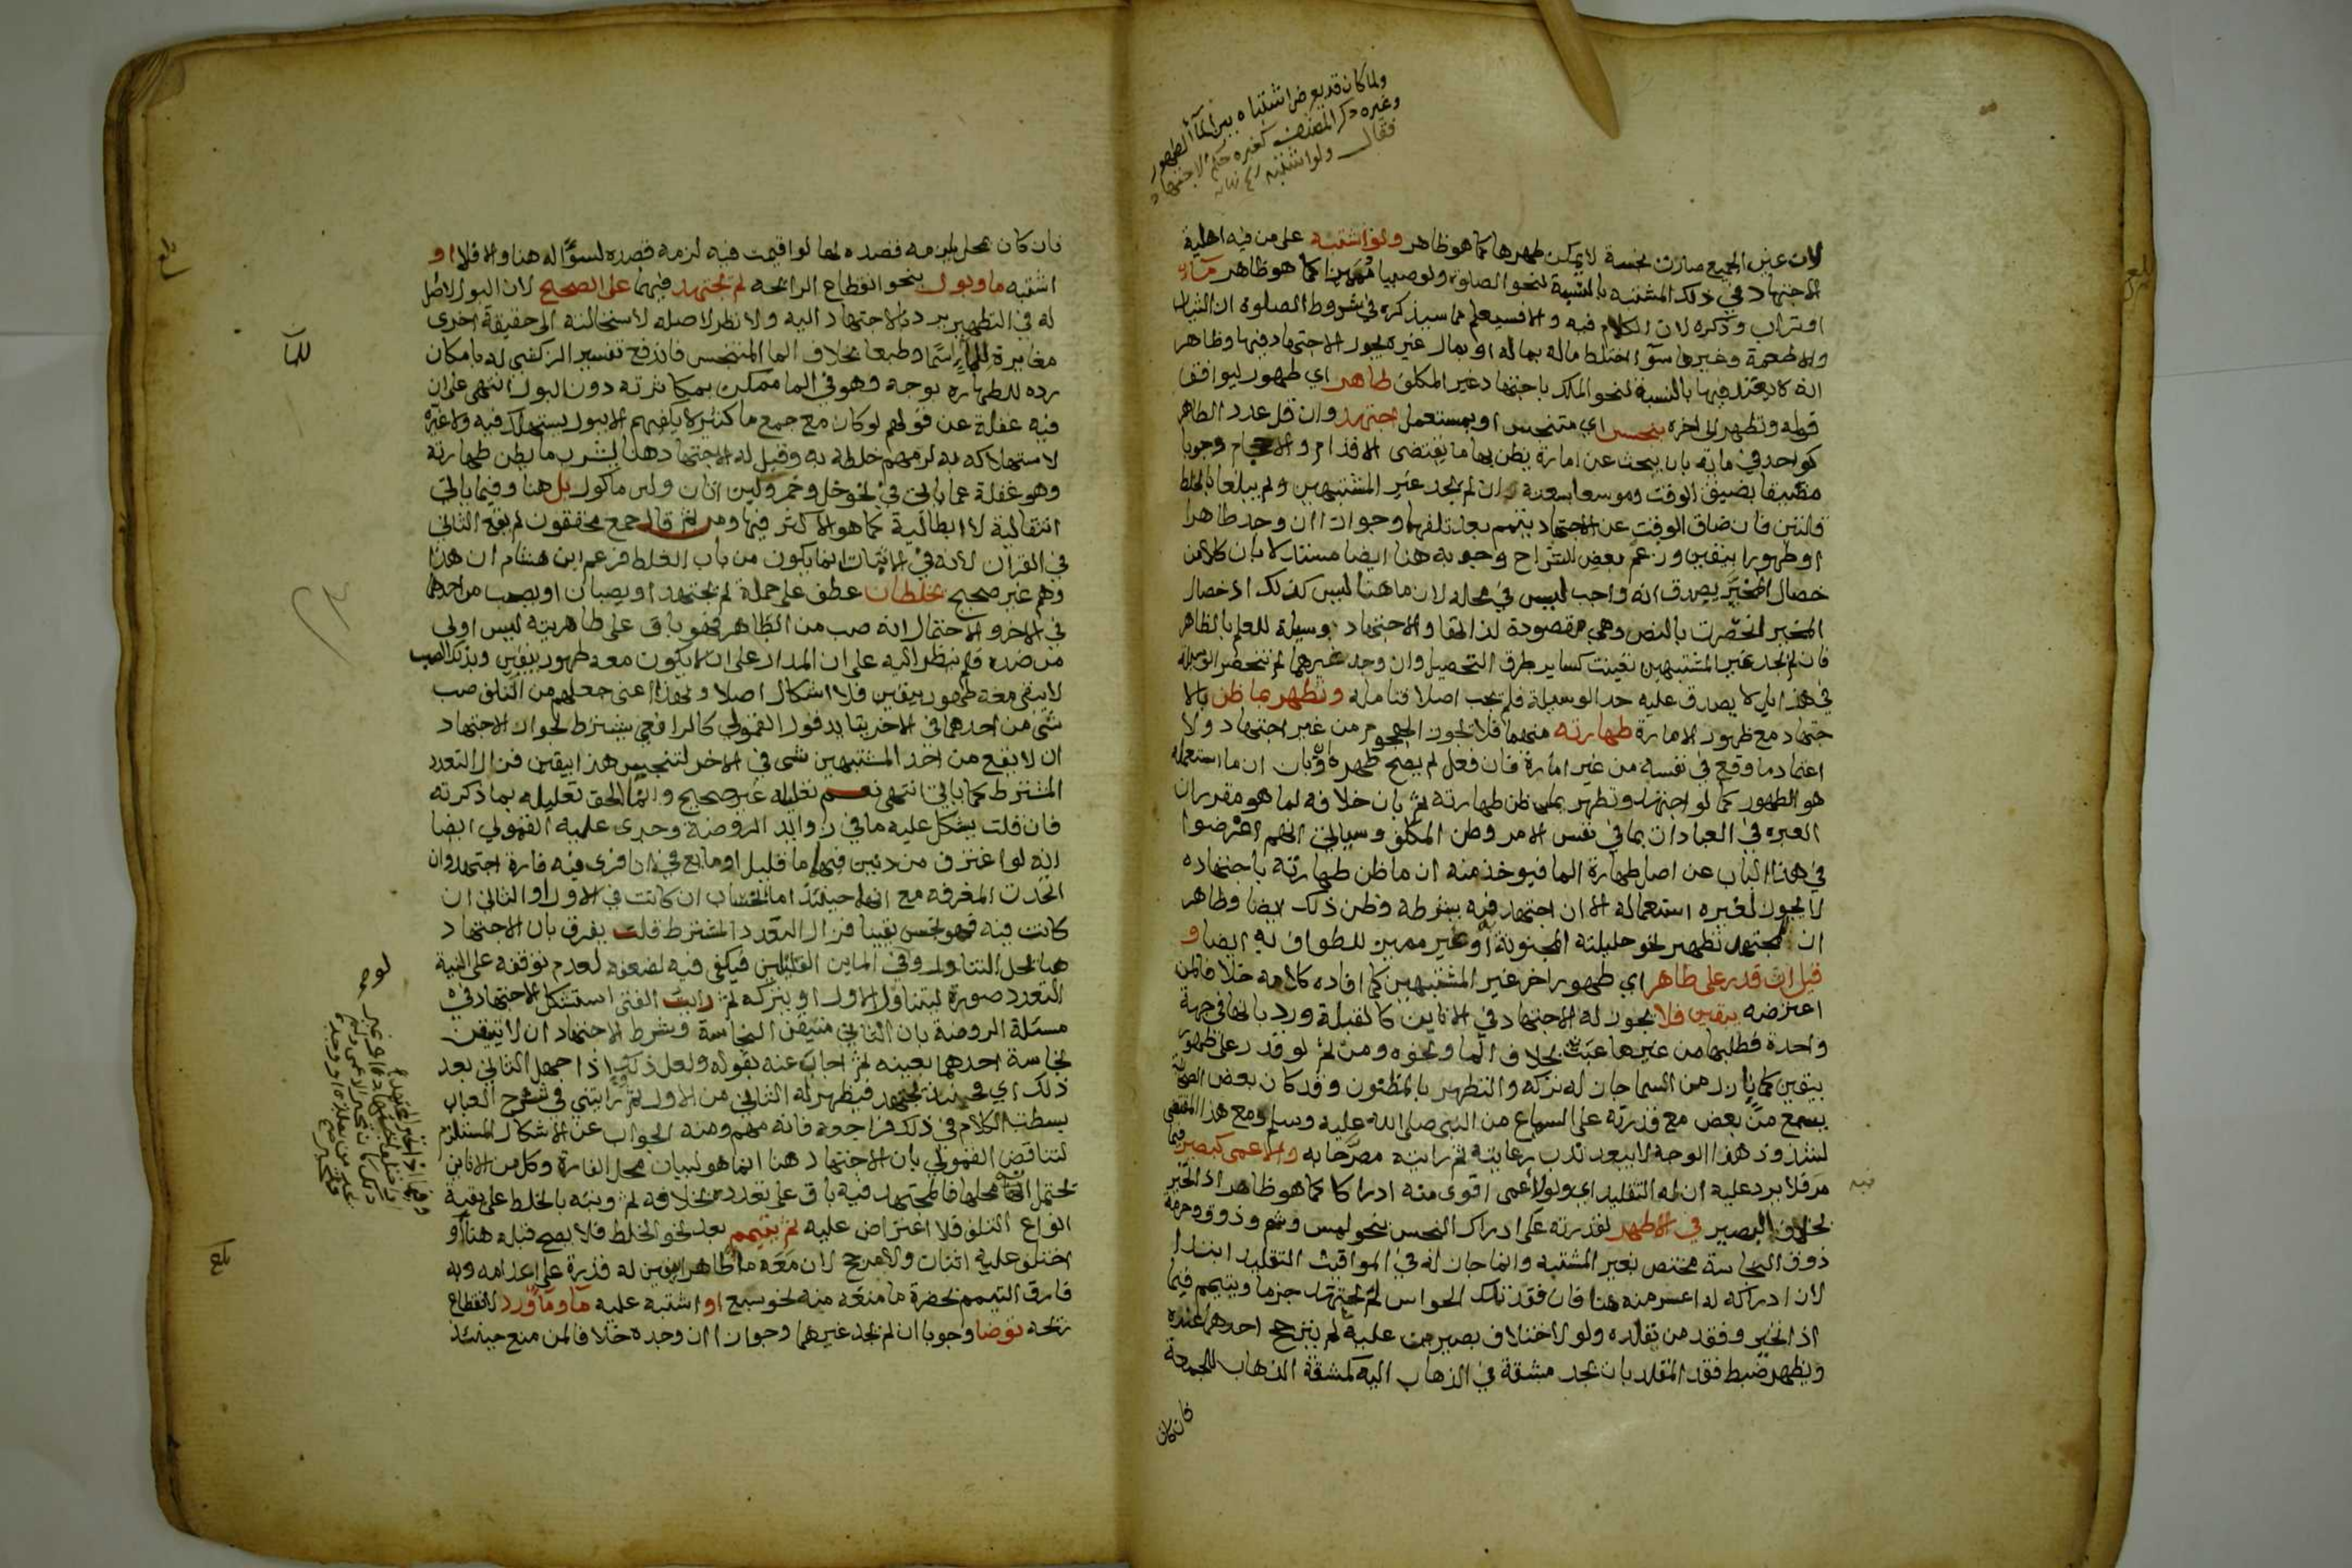 ولما كان قد يعرض اشتباه بين الماء الطهور
وغيره ذكر المصنف كغيره حكم الاجتهاد
فقال ولو اشتبه
لان عين الجميع صارت نجسة لا يمكن طهرها كما هو ظاهر ولو اشتبه على من فيه اهلية
الاجتهاد في ذلك المشتبه بالنسبة لنحو الصلوة ولو صبيا مميزا كما هو ظاهر ماء
او تراب وذكره لان الكلام فيه والا فسيعلم مما سيذكره في شروط الصلوة ان الثياب
والاطعمة وغيرها سوآ اختلط ماله بماله او بمال غيره يجوز الاجتهاد فيها وظاهر
انه لا يعتد فيها بالنسبة لنحو الملك باجتهاد غير المكلف طاهر اي طهور ليوافق
قوله وتطهر الى اخره بنجس اي متنجس او بمستعمل اجتهد وان قل عدد الطاهر
كواحد في مايه بان يبحث عن امارة يظن بها ما يقتضى الاقدام و الاحجام وجوبا
مضيقا بضيق الوقت وموسعا بسعته ان لم يجد غير المشتبهين ولم يبلغا بالخلط
قلتين فان ضاق الوقت عن الاجتهاد تيمم بعد تلفهما وجوازا ان وجد طاهرا
او طهورا بيقين وزعم بعض الشراح وجوبه هنا ايضا مستدلا بان كلا من
خصال المخير يصدق انه واجب ليس في محله لان ما هنا ليس كذلك اذ خصال
المخير انحصرت بالنص وهي مقصودة لذاتها والاجتهاد وسيلة للعلم بالطاهر
فان لم يجد غير المشتبهين تعينت كساير طرق التحصيل وان وجد غيرهما لم تنحصر الوسيلة
في هذا بل لا يصدق عليه حد الوسيلة فلم يجب اصلا فتامله وتطهر بما ظن بالا
جتهاد مع ظهور الامارة طهارته منهما فلا يجوز الهجوم من غير اجتهاد ولا
اعتماد ما وقع في نفسه من غير امارة فان فعل لم يصح طهره وان بان ان ما استعمله
هو الطهور كما لو اجتهد وتطهر بما ظن طهارته ثم بان خلافه لما هو مقرر ان
العبرة في العبادات بما في نفس الامر وظن المكلف وسياتي انهم اعرضوا
في هذا الباب عن اصل طهارة الما فيوخذ منه ان ما ظن طهارته باجتهاده
لا يجوز لغيره استعماله الا ان اجتهد فيه بشرطه وظن ذلك ايضا وظاهر
ان لمجتهد تطهير نحو حليلته المجنونة او غير مميز للطواف به ايضا و
قيل ان قدر على طاهر اي طهور اخر غير المشتبهين كما افاده كلامه خلافا لمن
اعترضه بيقين فلا يجوز له الاجتهاد في الانايين كالقبلة ورد بانها في جهة
واحدة فطلبها من غيرها عبث بخلاف الما ونحوه ومن ثم لو قدر على طهور
بيقين كما نازل من السما جاز له تركه والتطهر بالمظنون وقد كان بعض الصحابة
يسمع من بعض مع قدرته على السماع من النبي صلى الله عليه وسلم ومع هذا المقتضى
لشذوذ هذا الوجه لا يبعد ندب رعايته ثم رايته مصرحا به والاعمى كبصير فيما
مر فلا يرد عليه ان له التقليد اي ولو لاعمى اقوى منه ادراكا كما هو ظاهر اذا تحير
بخلاف البصير في الاظهر لقدرته على ادراك النجس بنحو لمس وشم وذوق وحرمة
ذوق النجاسة مختص بغير المشتبه وانما جاز له في المواقيت التقليد ابتدا
لان ادراكه له اعسر منه هنا فان فقد تلك الحواس لم يجتهد جزما ويتيمم فيما
اذا تحير وفقد من يقلده ولو لاختلاف بصيرين عليه لم يترجح احدهما عنده
ويظهر ضبط فقد المقلد بان يجد مشقة في الذهاب اليه كمشقة الذهاب للجمعة
فان كان
فان كان بمحل يلزمه قصده لها لو اقيمت فيه لزمه قصده لسؤاله هنا والا فلا او
اشتبه ما وبول بنحو انقطاع الرائحه لم يجتهد فيهما على الصحيح لان البول لا اصل
له في التطهير يرد بالاجتهاد اليه ولا نظر لاصله لاستحالته الى حقيقة اخرى
مغايرة للماء اسما وطبعا بخلاف الما المتنجس فاندفع تفسير الزركشي له بامكان
رده للطهارة بوجه وهو في الما ممكن بمكاثرته دون البول انتهى على ان
فيه غفلة عن قولهم لو كان مع جمع ما كثير لا يكفيهم الا ببول يستهلك فيه ولا غيره
لاستهلاكه به لزمهم خلطه به وقيل له الاجتهاد هنا لشرب ما يظن طهارته
وهو غفلة عما ياتي في نحو خل وخمر ولبن اتان ولبن ماكول بل هنا وفيما ياتي
انتقالية لا ابطالية كما هو الاكثر فيها ومن ثم قال جمع محققون لم يقع الثاني
في القران لانه في الاثبات انما يكون من باب الغلط فزعم ابن هشام ان هذا
وهم غير صحيح يخلطان عطف على جملة لم يجتهد او يصبان او يصب من احدهما
في الاخر والاحتمال انه صب من الطاهر فهو باق على طاهريته ليس اولى
من ضده فلم ينظر اليه على ان المدار على ان لا يكون معه طهور بيقين وبذلك الصب
لا يبقى معه طهور بيقين فلا اشكال اصلا وبهذا اعنى جعلهم من التلف صب
شي من احدهما في الاخر يتايد قول القمولي كالرافعي يشترط لجواز الاجتهاد
ان لا يقع من احد المشتبهين شي في الاخر لتنجيس هذا بيقين فزال التعدد
المشترط كما ياتي انتهى نعم تعليله غير صحيح وانما الحق تعليله بما ذكرته
فان قلت يشكل عليه ما في زوايد الروضة وجرى عليه القمولي ايضا
انه لو اغترف من دنين فيهما ما قليل او مايع في انا فراى فيه فارة اجتهد وان
اتحدت المغرفه مع انها حينئذ اما لخساب ان كانت في الاول او الثاني ان
كانت فيه فهو نجس يقينا فزال التعدد المشترط قلت يفرق بان الاجتهاد
هنا لحل التناول وفي الماين القليلين فيكفي فيه لضعفه لعدم توقفه على النية
التعدد صورة ليتناول الاول او يتركه ثم رايت الفتى استشكل الاجتهاد في
مسئلة الروضة بان الثاني متيقن النجاسة وشرط الاجتهاد ان لا تتيقن
نجاسة احدهما بعينه ثم اجاب عنه بقوله ولعل ذلك اذا جهل الثاني بعد
ذلك اي فحينئذ يجتهد فيظهر له الثاني من الاول ثم رايتني في شرح العباب
بسطت الكلام في ذلك فراجعه فانه مهم ومنه الجواب عن الاشكال المستلزم
لتناقض القمولي بان الاجتهاد هنا انما هو لبيان محل الفارة وكل من الانايين
يحتمل انه محلها فالمجتهد فيه باق على تعدده بخلافه ثم ونبه بالخلط على بقية
انواع التلف فلا اعتراض عليه ثم يتيمم بعد نحو الخلط فلا يصح قبله هنا او
اختلف عليه اثنان ولا مرجح لان معه ما طاهر بيقين له قدرة على اعدامه وبه
فارق التيمم بحضرة ما منعه منه نحو سبع او اشتبه عليه ما وما ورد لانقطاع
ريحه توضا وجوبا ان لم يجد غيرهما وجوازا ان وجده خلافا لمن منع حينئذ